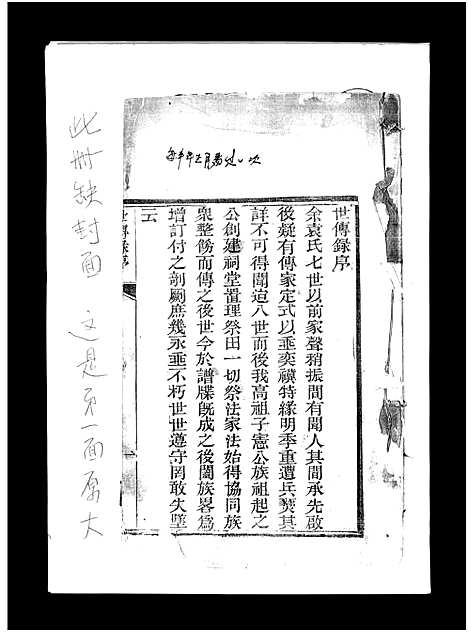 世傳錄序
余袁氏七世以前家聲稍振間有聞人其間承先啟
後疑有傳家定式以垂奕禩特緣明季重遭兵燹其
詳不可得聞迨八世而後我高祖子憲公族祖起之
公創建祠堂置理祭田一切祭法家法始得協同族
衆整飭而傳之後世今於譜牒既成之後闔族畧爲
增訂付之剞劂庶幾永垂不朽世世遵守罔敢失墜
云
世傳錄序
此册缺封面 这是第一面原大